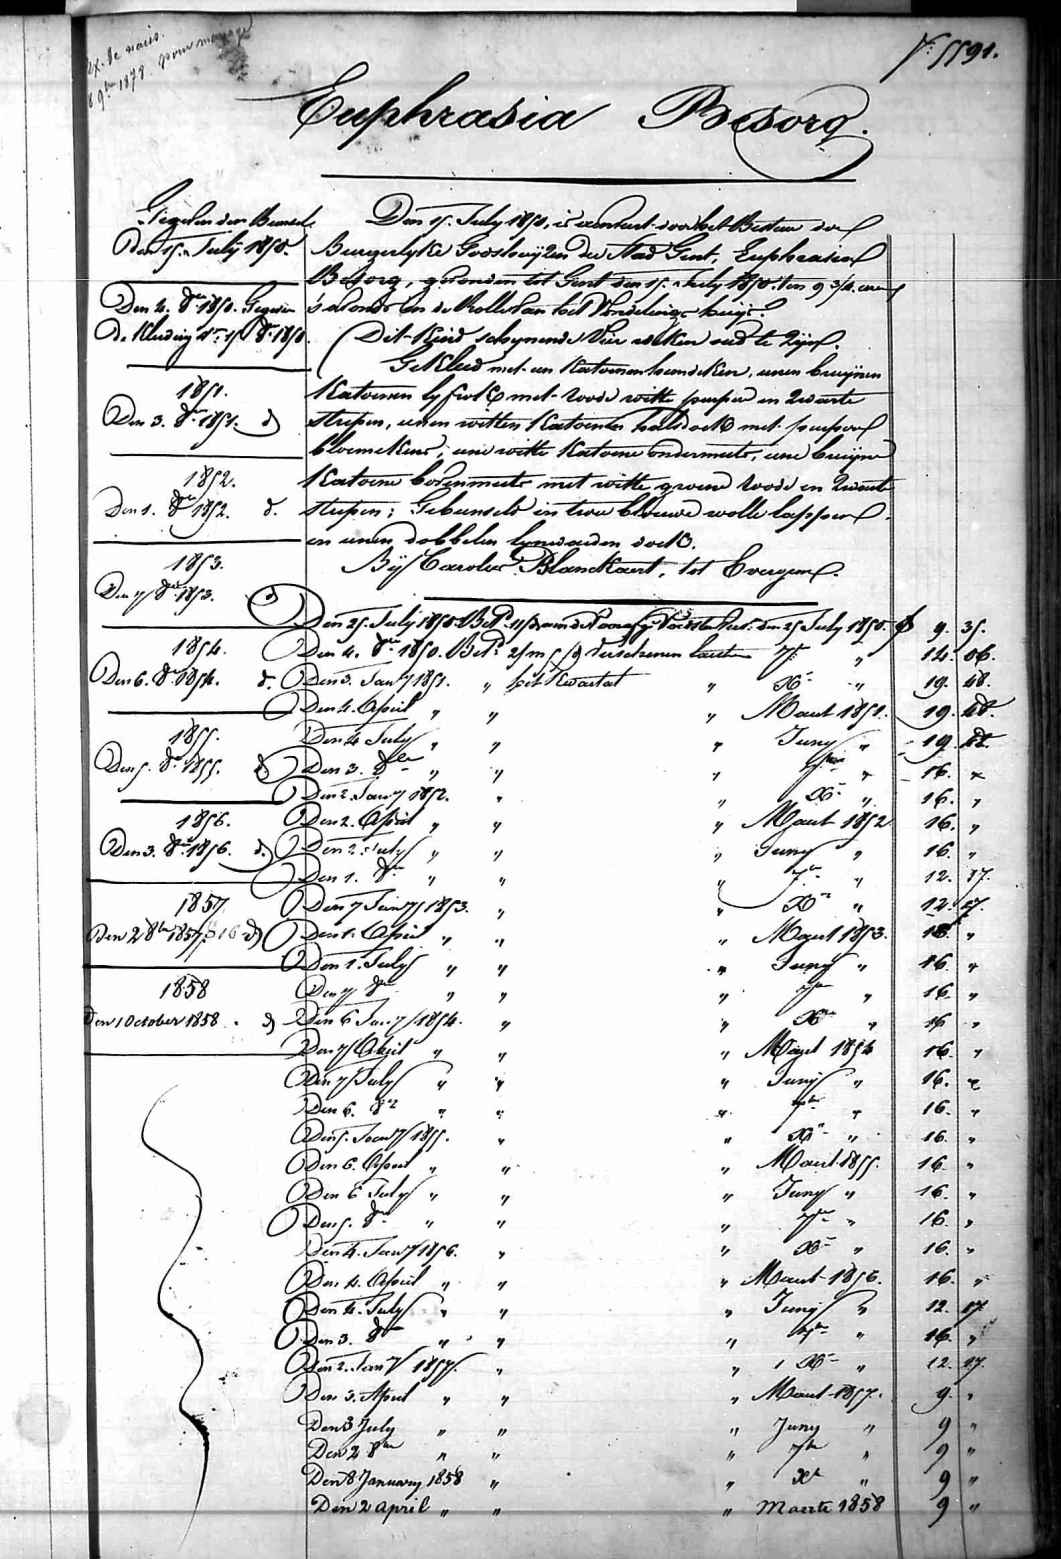 Ex. de nais.
8 9bre 1878. pour mariage
N: 5591.
Euphrasia Besorg.
Gegeven den Bunsel
Den 15. July 1850.
Den 4. 8bre 1850. Gegeven
de Kleeding
1851.
Den 3. 8bre 1851. d
1852.
Den 1. 8bre 1852. d.
1853.
Den 7 8bre 1853. d
1854.
Den 6. 8bre 1854. d.
1855.
Den 5. 8bre 1855. d
1856.
Den 3. 8bre 1856. d.
1857
Den 2 8bre 1857. 16 d
1858
Den 1 October 1858 . d
Den 15. July 1850, is door het Bestuur der
Burgerlyke Godshuyzen der Stad Gent, Euphrasia
Besorg, gevonden tot Gent den 15. July 1850. ten 9 3/4 uren
s'avonds in de Rolle van het Vondelings huys.
(Dit Kind schynende vier weken oud te zyn.
Gekleed met een Katoenen hemdeken, eenen bruynen
Katoenen lyfrok met roode witte purper en zwarte
strepen, eenen witten Katoenen halsdoek met purper
bloemekens, eene witte Katoene ondermuts, eene bruyne
Katoene bovenmuts met witte groene roode en zwarte
strepen; Gebunseld in twee blauwe wolle lappen
en eenen dobbelen lynwaeden doek.
Bij Carolus Blanckaert, tot Evergem.
Den 25. July 1850 Bet. den 25 July 1850. f 9. 35.
Den 4. 8bre 1850. Bet. verschenen 7bre " 14. 06.
Den 3. Janry 1851. " het Kwartael " Xbre " 19. 48.
Den 4. April " " " Maart 1851. 19. 48.
Den 4 July " " " Juny " 19. 48.
Den 3. 8bre " " " 7bre " 16. "
Den 2. Janry 1852. " " Xbre " 16. "
Den 2. April " " " Maart 1852 16. "
Den 2. July " " " Juny " 16. "
Den 1. 8bre " " " 7bre " 12. 17.
Den 7 Janry 1853. " " Xbre " 12. 17.
Den 1. April " " " Maart 1853. 16. "
Den 1. July " " " Juny " 16. "
Den 7 8bre " " " 7bre " 16. "
Den 6 Janry 1854. " " Xbre " 16 "
Den 7 April " " " Maart 1854 16. "
Den 7 July " " " Juny " 16. "
Den 6. 8bre " " " 7bre " 16. "
Den 5. Janry 1855. " " Xbre " 16. "
Den 6. April " " " Maart 1855. 16. "
Den 6 July " " " Juny " 16. "
Den 5. 8bre " " " 7bre " 16. "
Den 4. Janry 1856. " " Xbre " 16. "
Den 4. April " " " Maart 1856. 16. "
Den 4. July " " " Juny " 12. 17
Den 3. 8bre " " " 7bre " 16. "
Den 2. Janry 1857. " " Xbre " 12. 17.
Den 3. April " " " Maart 1857. 9. "
Den 3 July " " " Juny " 9 "
Den 2 8bre " " " 7bre " 9 "
Den 8 January 1858 " " Xr " 9 "
Den 2 april " " " Maerte 1858 9 "